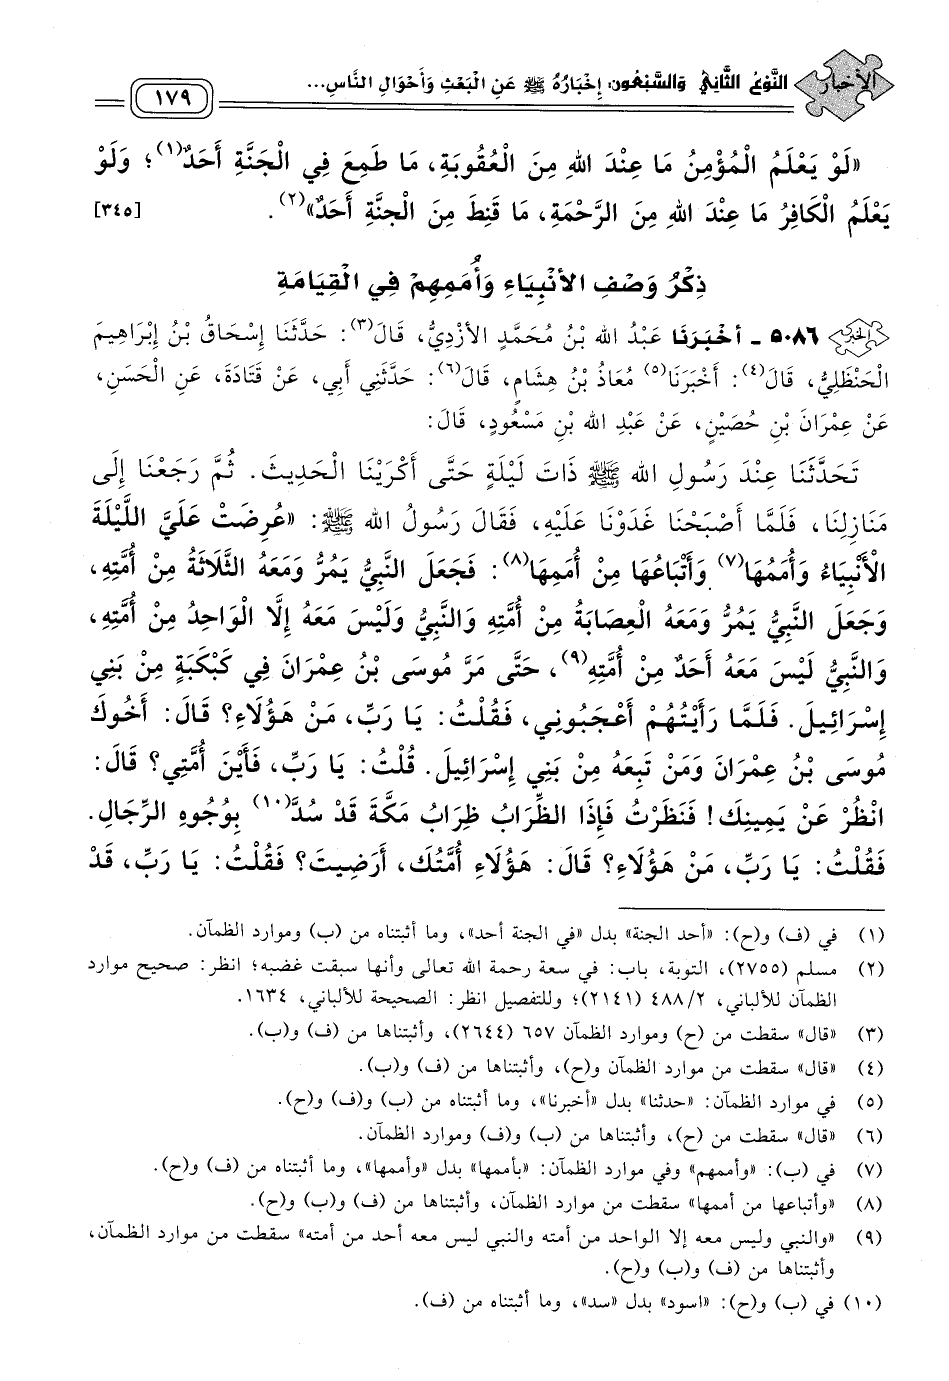 الأخبار
النَّوْعُ الثَّانِي وَالسَّبْعُون: إخْبَارُهُ ﷺ عَنِ الْبَعْثِ وَأَحْوَالِ النَّاسِ...
١٧٩
«لَوْ يَعْلَمُ الْمُؤْمِنُ مَا عِنْدَ اللهِ مِنَ الْعُقُوبَةِ، مَا طَمِعَ فِي الْجَنَّةِ أَحَدٌ(١)؛ وَلَوْ
يَعْلَمُ الْكَافِرُ مَا عِنْدَ اللهِ مِنَ الرَّحْمَةِ، مَا قَنِطَ مِنَ الْجنَّةِ أَحَدٌ»(٢). [٣٤٥]
ذِكْرُ وَصْفِ الأَنْبِيَاءِ وَأُمَمِهِمْ فِي الْقِيَامَةِ
الخبر ٥٠٨٦ ـ أخْبَرَنَا عَبْدُ اللهِ بْنُ مُحَمَّدٍ الأَزْدِيُّ، قَالَ(٣): حَدَّثَنَا إِسْحَاقُ بْنُ إِبْرَاهِيمَ
الْحَنْظَلِيُّ، قَالَ(٤): أَخْبَرَنَا(٥) مُعَاذُ بْنُ هِشَامٍ، قَالَ(٦): حَدَّثَنِي أَبِي، عَنْ قَتَادَةَ، عَنِ الْحَسَنِ،
عَنْ عِمْرَانَ بْنِ حُصَيْنٍ، عَنْ عَبْدِ اللهِ بْنِ مَسْعُودٍ، قَالَ:
تَحَدَّثَنَا عِنْدَ رَسُولِ اللهِ ﷺ ذَاتَ لَيْلَةٍ حَتَّى أَكْرَيْنَا الْحَدِيثَ. ثُمَّ رَجَعْنَا إِلَى
مَنَازِلِنَا، فَلَمَّا أَصْبَحْنَا غَدَوْنَا عَلَيْهِ، فَقَالَ رَسُولُ اللهِ ﷺ: «عُرِضَتْ عَلَيَّ اللَّيْلَةَ
الْأَنْبِيَاءُ وَأُمَمُهَا(٧) وَأَتْبَاعُهَا مِنْ أُمَمِهَا(٨): فَجَعَلَ النَّبِيُّ يَمُرُّ وَمَعَهُ الثَّلَاثَةُ مِنْ أُمَّتِهِ،
وَجَعَلَ النَّبِيُّ يَمُرُّ وَمَعَهُ الْعِصَابَةُ مِنْ أُمَّتِهِ وَالنَّبِيُّ وَلَيْسَ مَعَهُ إِلَّا الْوَاحِدُ مِنْ أُمَّتِهِ،
وَالنَّبِيُّ لَيْسَ مَعَهُ أَحَدٌ مِنْ أُمَّتِهِ(٩)، حَتَّى مَرَّ مُوسَى بْنُ عِمْرَانَ فِي كَبْكَبَةٍ مِنْ بَنِي
إِسْرَائِيلَ. فَلَمَّا رَأَيْتُهُمْ أَعْجَبُونِي، فَقُلْتُ: يَا رَبِّ، مَنْ هَؤُلَاءِ؟ قَالَ: أَخُوكَ
مُوسَى بْنُ عِمْرَانَ وَمَنْ تَبِعَهُ مِنْ بَنِي إِسْرَائِيلَ. قُلْتُ: يَا رَبِّ، فَأَيْنَ أُمَّتِي؟ قَالَ:
انْظُرْ عَنْ يَمِينِكَ! فَنَظَرْتُ فَإِذَا الظِّرَابُ ظِرَابُ مَكَّةَ قَدْ سُدَّ(١٠) بِوُجُوهِ الرِّجَالِ.
فَقُلْتُ: يَا رَبِّ، مَنْ هَؤُلَاءِ؟ قَالَ: هَؤُلَاءِ أُمَّتُكَ، أَرَضِيتَ؟ فَقُلْتُ: يَا رَبِّ، قَدْ
(١) في (ف) و(ح): «أحد الجنة» بدل «في الجنة أحد»، وما أثبتناه من (ب) وموارد الظمآن.
(٢) مسلم (٢٧٥٥)، التوبة، باب: في سعة رحمة الله تعالى وأنها سبقت غضبه؛ انظر: صحيح موارد
الظمآن للألباني، ٤٨٨/٢ (٢١٤١)؛ وللتفصيل انظر: الصحيحة للألباني، ١٦٣٤.
(٣) «قال» سقطت من (ح) وموارد الظمآن ٦٥٧ (٢٦٤٤)، وأثبتناها من (ف) و(ب).
(٤) «قال» سقطت من موارد الظمآن و(ح)، وأثبتناها من (ف) و(ب).
(٥) في موارد الظمآن: «حدثنا» بدل «أخبرنا»، وما أثبتناه من (ب) و(ف) و(ح).
(٦) «قال» سقطت من (ح)، وأثبتناها من (ب) و(ف) وموارد الظمآن.
(٧) في (ب): «وأممهم» وفي موارد الظمآن: «بأممها» بدل «وأممها»، وما أثبتناه من (ف) و(ح).
(٨) «وأتباعها من أممها» سقطت من موارد الظمآن، وأثبتناها من (ف) و(ب) و(ح).
(٩) «والنبي وليس معه إلا الواحد من أمته والنبي ليس معه أحد من أمته» سقطت من موارد الظمآن،
وأثبتناها من (ف) و(ب) و(ح).
(١٠) في (ب) و(ح): «اسود» بدل «سد»، وما أثبتناه من (ف).